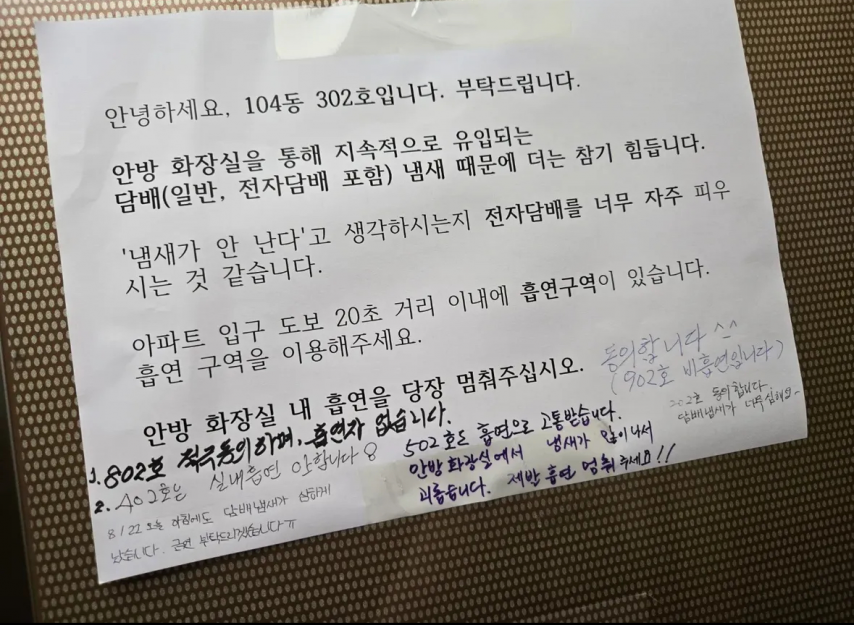 안녕하세요, 104동 302호입니다. 부탁드립니다.
안방 화장실을 통해 지속적으로 유입되는
담배(일반, 전자담배 포함) 냄새 때문에 더는 참기 힘듭니다.
'냄새가 안 난다'고 생각하시는지 전자담배를 너무 자주 피우
시는 것 같습니다.
아파트 입구 도보 20초 거리 이내에 흡연구역이 있습니다.
흡연 구역을 이용해주세요.
안방 화장실 내 흡연을 당장 멈춰주십시오.
동의합니다 ^^
(902호 비흡연입니다)
202호 동의합니다
담배냄새가 너무심해요~
1. 802호 적극동의하며, 흡연자 없습니다.
2. 402호는 실내흡연 안합니다
8/22 오늘 아침에도 담배냄새가 심하게
났습니다. 금연 부탁드리겠습니다 ㅠ
502호도 흡연으로 고통받습니다.
안방 화장실에서 냄새가 많이 나서
괴롭습니다. 제발 흡연 멈춰 주세요!!